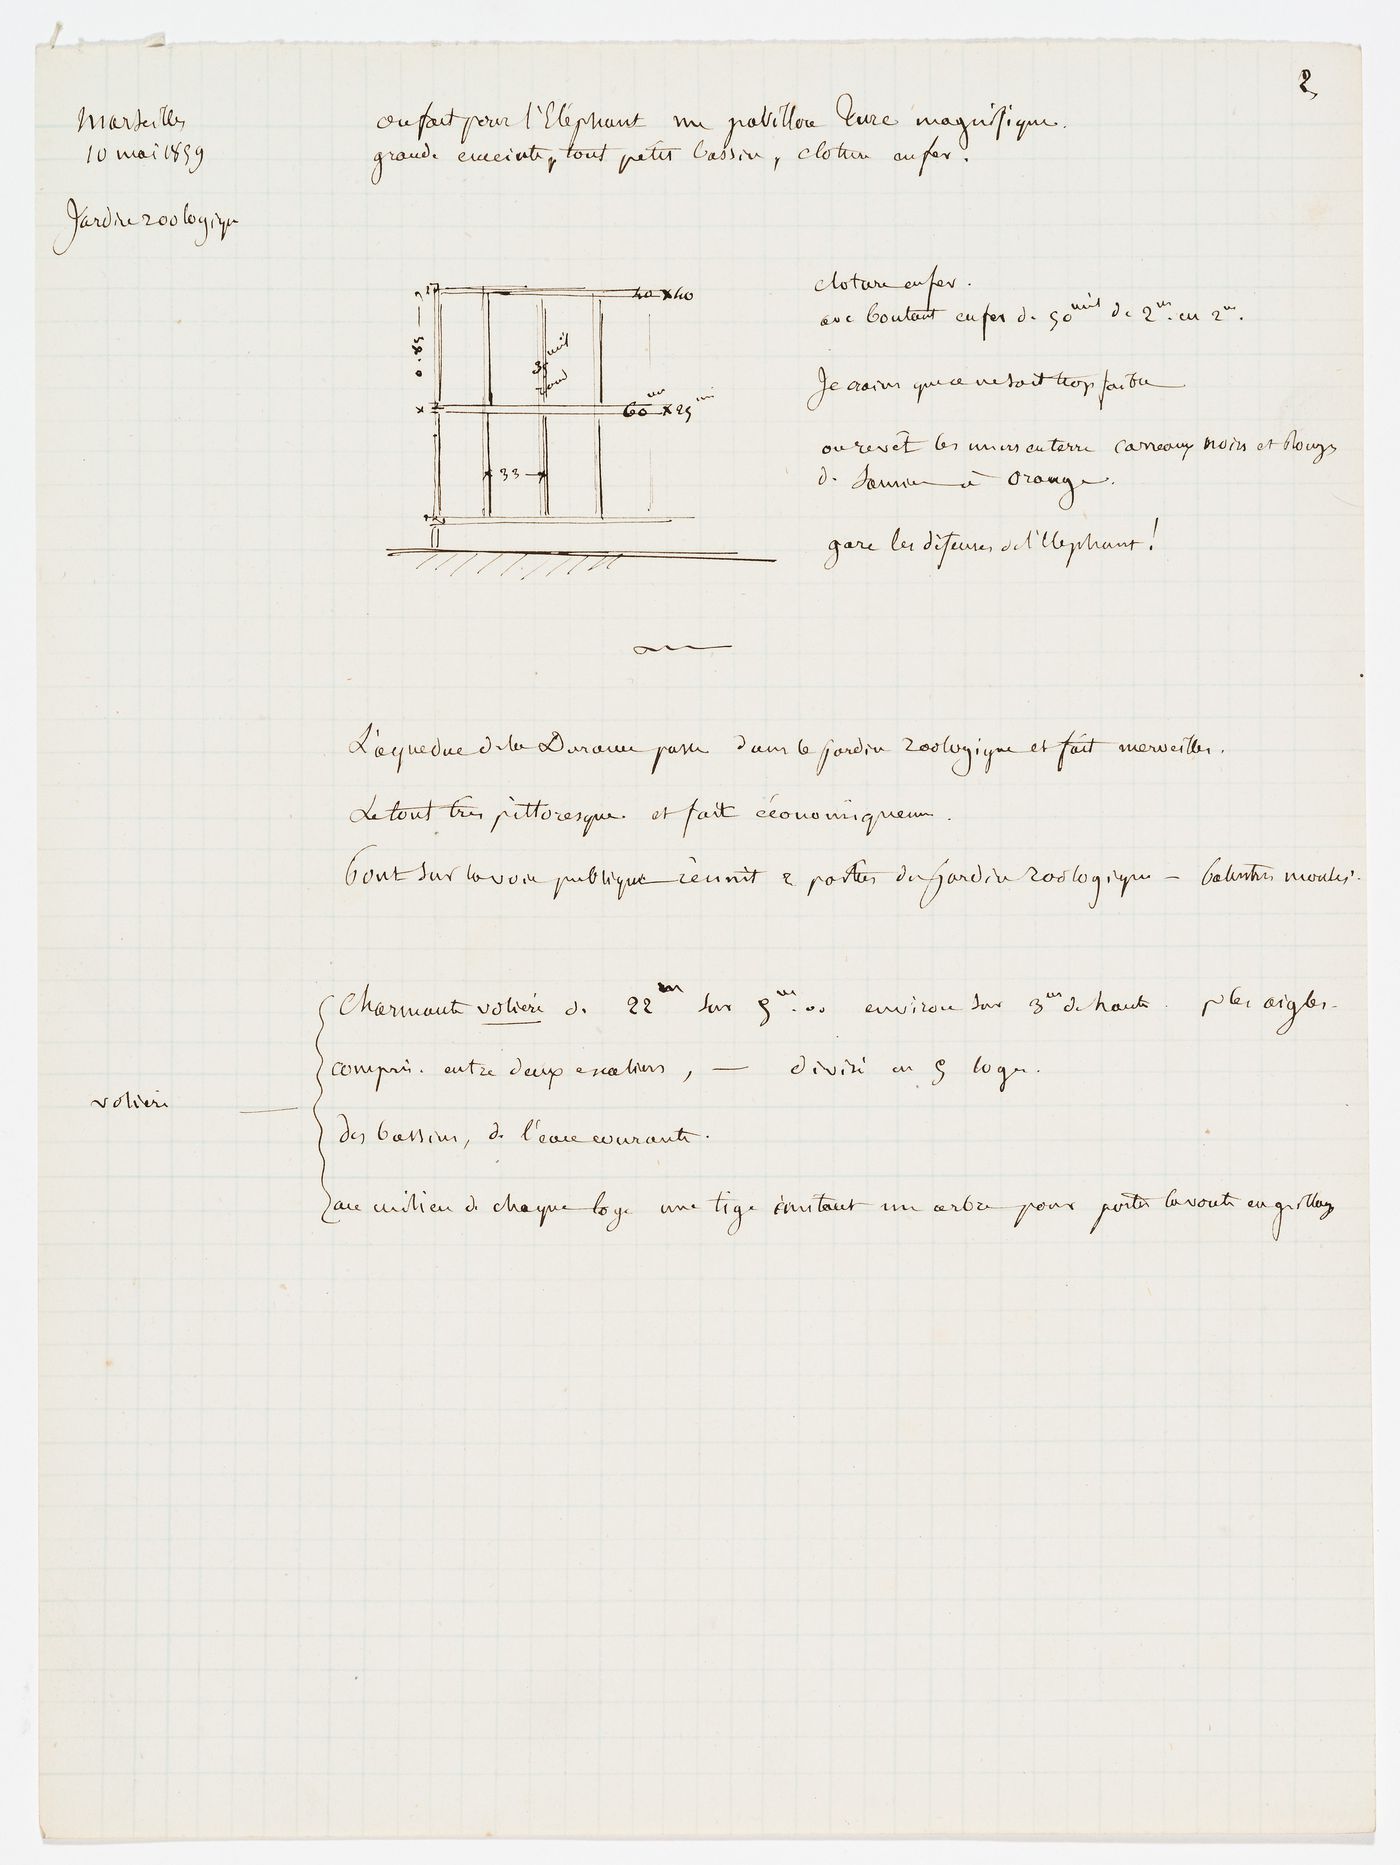 2
Marseilles
10 mai 1859
Jardin zoologique
on fait pour l'Eléphant un pavillon Turc magnifique.
grande enceinte, tout petit bassin, cloture en fer.
40 x 40
0.85
35 mil
rond
60 m x 25 m
33
cloture en fer.
avec boutant en fer de 50 mil de 2m. en 2m.
Je crains que ce ne soit trop faible
on revêt les murs en terre carreaux noirs et Rouges
de à Orange.
gare les défenses de l'Elephant!
L'aqueduc de la Durance passe dans le jardin zoologique et fait merveilles.
Le tout très pittoresque et fait économiquem.
Pont sur la voie publique réunit 2 parties du jardin zoologique — balustres moulés.
volière
Charmante volière de 22m sur 5m.00 environ sur 3m de haute. p les aigles.
compris. entre deux escaliers, — divisé en 5 loges.
des bassins, de l'eau courante.
au milieu de chaque loge une tige imitant un arbre pour porter la voute en grillage